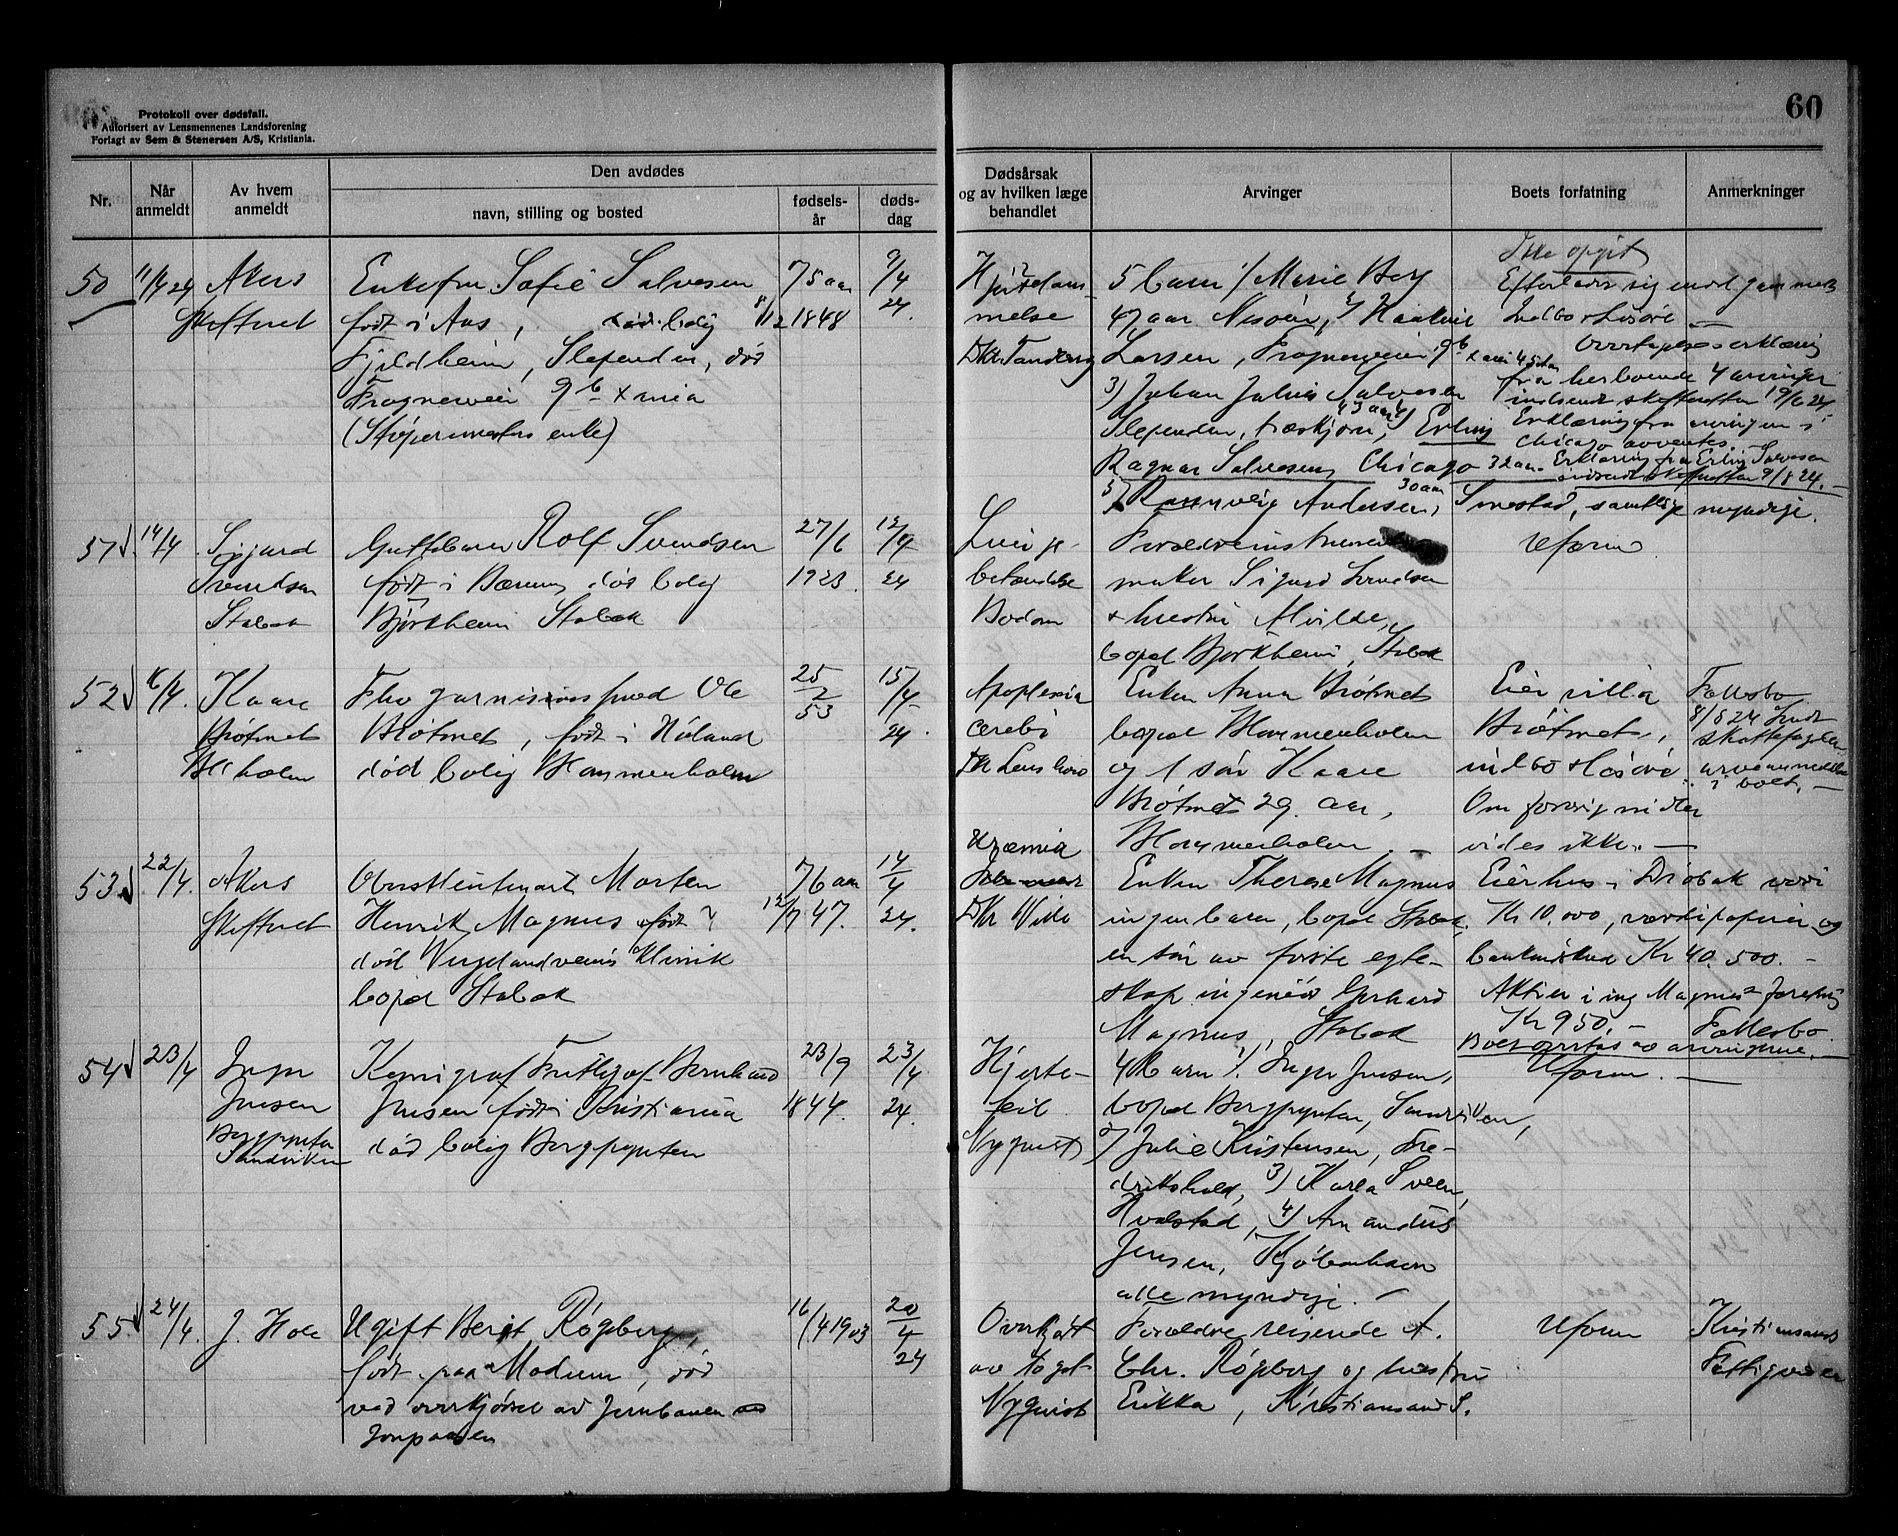 Protokoll over dødsfall.
Autorisert av Lensmennenes Landsforening
Forlagt av Sem & Stenersen A/S, Kristiania.
60
Nr.
Når anmeldt
Av hvem anmeldt
Den avdødes
navn, stilling og bosted
fødsels-år
døds-dag
Dødsårsak og av hvilken læge behandlet
Arvinger
Boets forfatning
Anmerkninger
50
11/4 24
Akers
Skifteret
Enkefru Sofie Salvesen
født i Aas, død bolig
Fjeldheim, Slependen, død
Frognerveien 9 b Xania
(Støpermesters enke)
75 aar
8/12 1848
9/4
24.
Hjertelam-
melse
Dr. Tandberg
5 barn 1/ Marie Berg
47 aar Nesøen, 2/ Haakine
Larsen, Frognerveien 9 b
3) Johan Julius Salvesen
43 aar
Slependen, træskjærer, 4) Erling
Ragnar Salvesen, Chicago 32 aar
30 aar
5) Ragnveig Andersen, Smestad, samtlige myndige.
Ikke opgit
Efterlater sig endel gammelt
Indbo & Løsøre —
Overtagelseserklæring
fra herboende 4 arvinger
indsendt skifteretten 19/6 24.
Erklæring fra arvingen i
Chicago avventes.
Erklæring fra Erling Salvesen
indsendt skifteretten 9/8 24. —
51
14/4
Sigurd
Svendsen
Stabæk
Guttebarn Rolf Svendsen
født i Bærum, død bolig
Bjørkheim Stabæk
27/6
1923
12/4
24
Lunge-
betændelse
Bodom
Forældre instrument
maker Sigurd Svendsen
& hustru Alvilde,
bopæl Bjørkheim, Stabæk
Uformu
52
16/4.
Kaare
Brøtmet
Bl holm
Fhv garnisonssmed Ole
Brøtmet, født i Høland
død bolig Blommenholm
25/2
53
15/4
24.
Apoplexia
cerebri
Dr Lensberg
Enken Anna Brøtmet
bopæl Blommenholm
og 1 søn Kaare
Brøtmet 29 aar,
Blommenholm. —
Eier villa
Brøtmet,
indbo & løsøre.
Om forøvrig midler
vides ikke. —
Fællesbo
8/8 24 Sendt
skattefogden
arveanmeldelse
i boet. —
53
22/4.
Akers
Skifteret
Oberstleutenant Morten
Henrik Magnus født ?
død Vergelandsveiens Klinik
bopæl Stabæk
76 aar
12/7 47.
14/4
24.
Uræmia
Dr Wille
Enken Therese Magnus
ingen barn, bopæl Stabæk.
en søn av første egte-
skap ingeniør Gerhard
Magnus, Stabæk
Eier hus i Drøbak værdi
Kr 10,000, værdipapirer og
bankindskud Kr 40.500. —
Aktier i ing Magnus' forretning
Kr 950. —
Fællesbo
Boet overtas av arvingerne. —
54
23/4
Inga
Jensen
Bergpynten
Sandviken
Kemigraf Fritjof Bernhard
Jensen født i Kristiania
død bolig Bergpynten
23/9
1844.
23/4
24.
Hjerte-
feil
Nyquist
4 Barn 1/. Inga Jensen,
bopæl Bergpynten, Sandviken,
2) Julie Kristensen, Fre-
drikshald, 3) Karla Sveen,
Hvalstad, 4) Amandus
Jensen, Kjøbenhavn
alle myndige. —
Uformu. —
55.
24/4.
J. Hole
Ugift Berit Røgeberg,
født paa Modum, død
ved overkjørsel av Jernbanen
Jongaasen
16/4 1903
20/4
24
Overkjørt
av toget
Nyquist
Forældre reisende A.
Chr. Røgeberg og hustru
Erikka, Kristiansand S.
Uformu
Kristiansands
Fattigvæsen